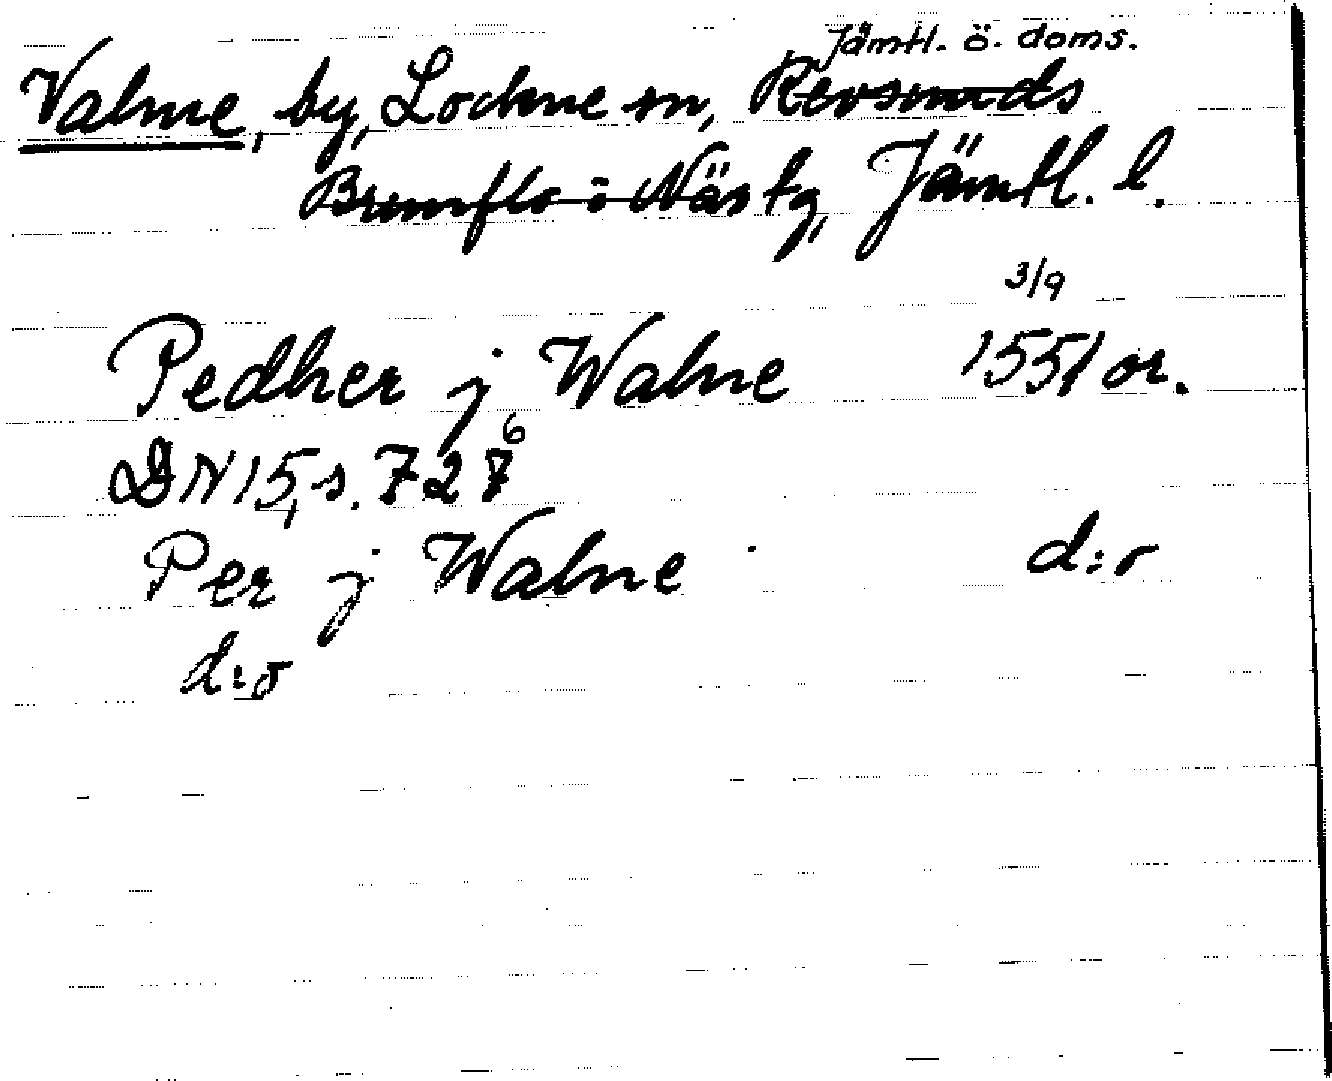 Jämtl. ö. doms.
Valne, by, Lockne sn, Revsunds
Brunflo o Näs tg, Jämtl. l.
3/9
Pedher j Walne 1551 or.
DN 15, s. 727 6
Per j Walne d:o
d:o